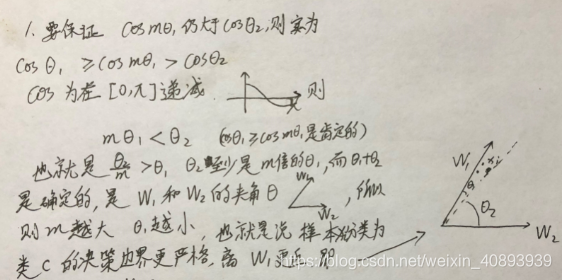 1. 要保证 cosmθ₁ 仍大于 cosθ₂, 则实为
cosθ₁ ≥ cosmθ₁ > cosθ₂
cos 为在 [0,π] 递减 则
mθ₁ < θ₂ (cosθ₁ ≥ cosmθ₁ 是肯定的)
也就是 θ₂/m > θ₁ θ₂至少是m倍的θ₁, 而θ₁+θ₂
是确定的, 是 W₁ 和 W₂ 的夹角 θ , 所以
W₁
W₂
则 m 越大 θ₁越小, 也就是说 样本 分类为
类 C 的决策边界更严格, 离 W₁ 更近
W₁
xᵢ
θ₁
θ₂
W₂
https://blog.csdn.net/weixin_40893939